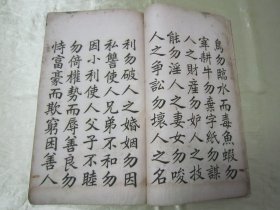 鳥勿臨水而毒魚蝦勿
宰耕牛勿棄字紙勿謀
人之財產勿妒人之技
能勿淫人之妻女勿唆
人之爭訟勿壞人之名
利勿破人之婚姻勿因
私讐使人兄弟不和勿
因小利使人父子不睦
勿倚權勢而辱善良勿
恃富豪而欺窮困善人